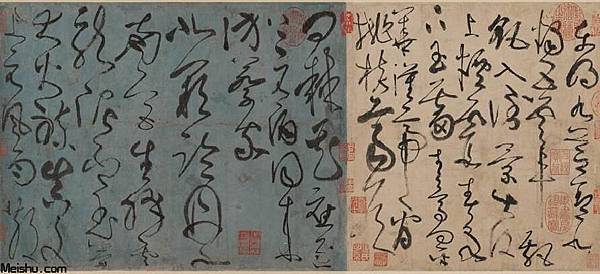 東明九芝蓋北
燭五雲車飄
颻入倒景出沒
上煙霞春泉
下玉霤青鳥向金
華漢帝看
桃核齊侯
問棘花應逐
上元酒同來
訪蔡家
北闕臨丹水
南宮生絳雲
龍泥印玉簡
大火練真文
上元風雨散
Meishu.com